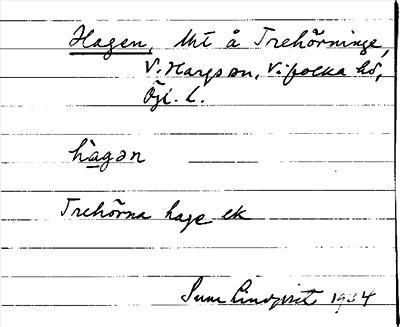 Hagen, lht å Trehörninge,
V. Hargs sn, Vifolka hd,
Ögl. L.
hagən
Trehörna hage ek
Sune Lindqvist 1934